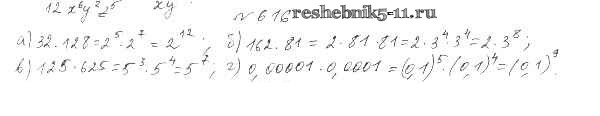 12x⁶y²z⁵ xy
№616 reshebnik5-11.ru
а) 32·128=2⁵·2⁷=2¹²; б) 162·81=2·81·81=2·3⁴·3⁴=2·3⁸;
в) 125·625=5³·5⁴=5⁷; г) 0,00001·0,0001=(0,1)⁵·(0,1)⁴=(0,1)⁹.